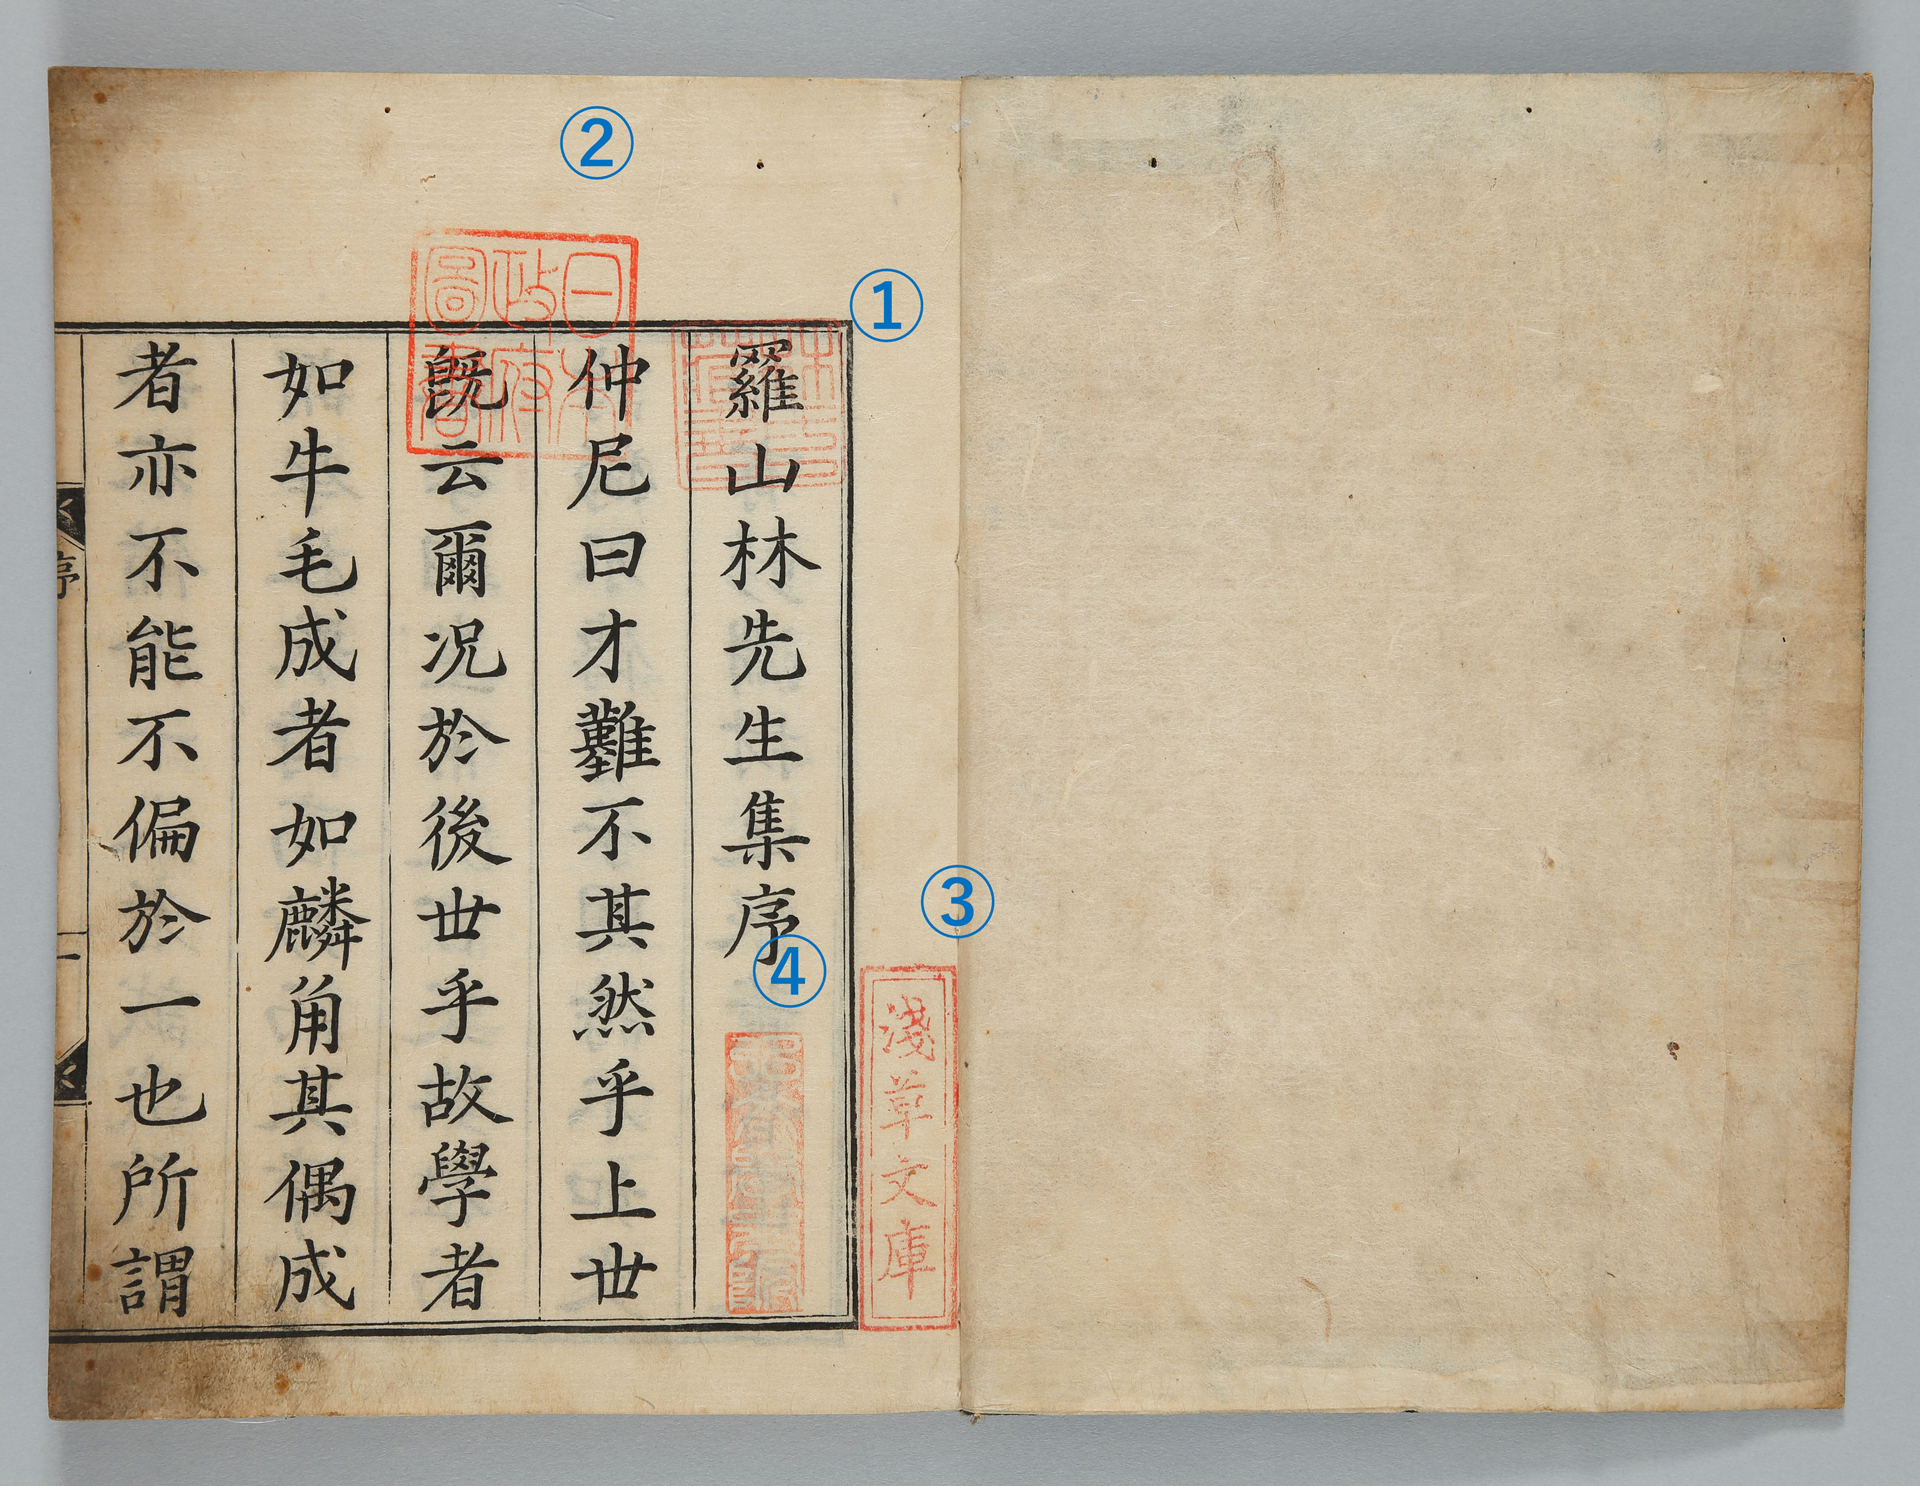 ③
淺草文庫
①
林氏
藏書
羅山林先生集序
④
②
日本
政府
圖書
仲尼曰才難不其然乎上世
既云爾况於後世乎故學者
如牛毛成者如麟角其偶成
者亦不能不偏於一也所謂
序
一